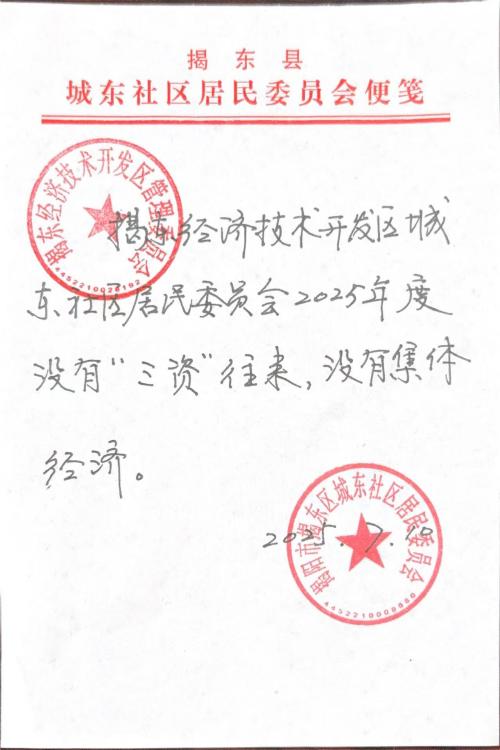 揭东县
城东社区居民委员会便笺
揭东经济技术开发区管理委员会
揭东经济技术开发区城
东社区居民委员会2025年度
没有“三资”往来，没有集体
经济。
2025.7.10
揭阳市揭东区城东社区居民委员会